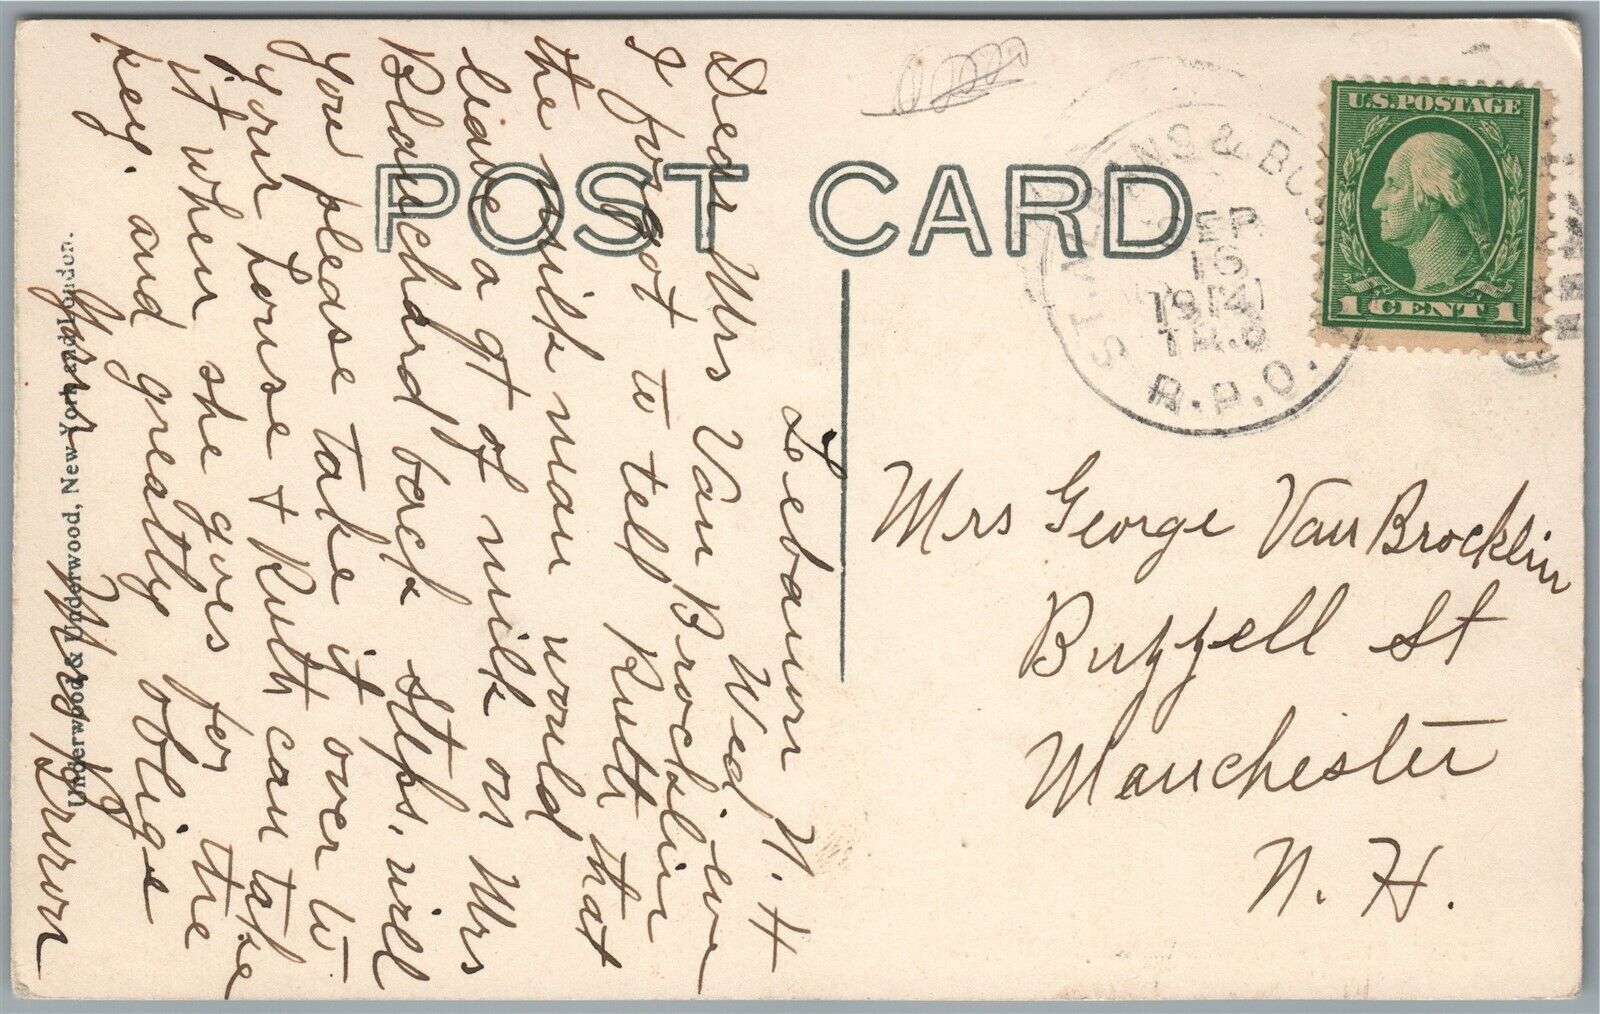 POST CARD
U.S. POSTAGE
1 CENT 1
ST. ALBANS & BOS
SEP
16
1914
R.P.O.
Lebanon N.H
Wed. eve
Dear Mrs Van Brocklin
I forgot to tell Ruth that
the milk man would
leave a qt of milk on Mrs
Blanchard back steps, will
you please take it over to
your house + Ruth can take
it when she goes for the
key. and greatly oblige
Yours
Mrs Brown
Mrs George Van Brocklin
Buzzell St
Manchester
N. H.
Underwood & Underwood, New York and London.